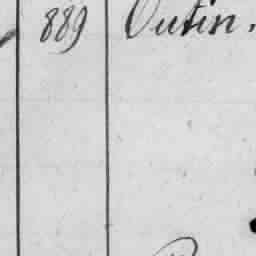 889 Outin.